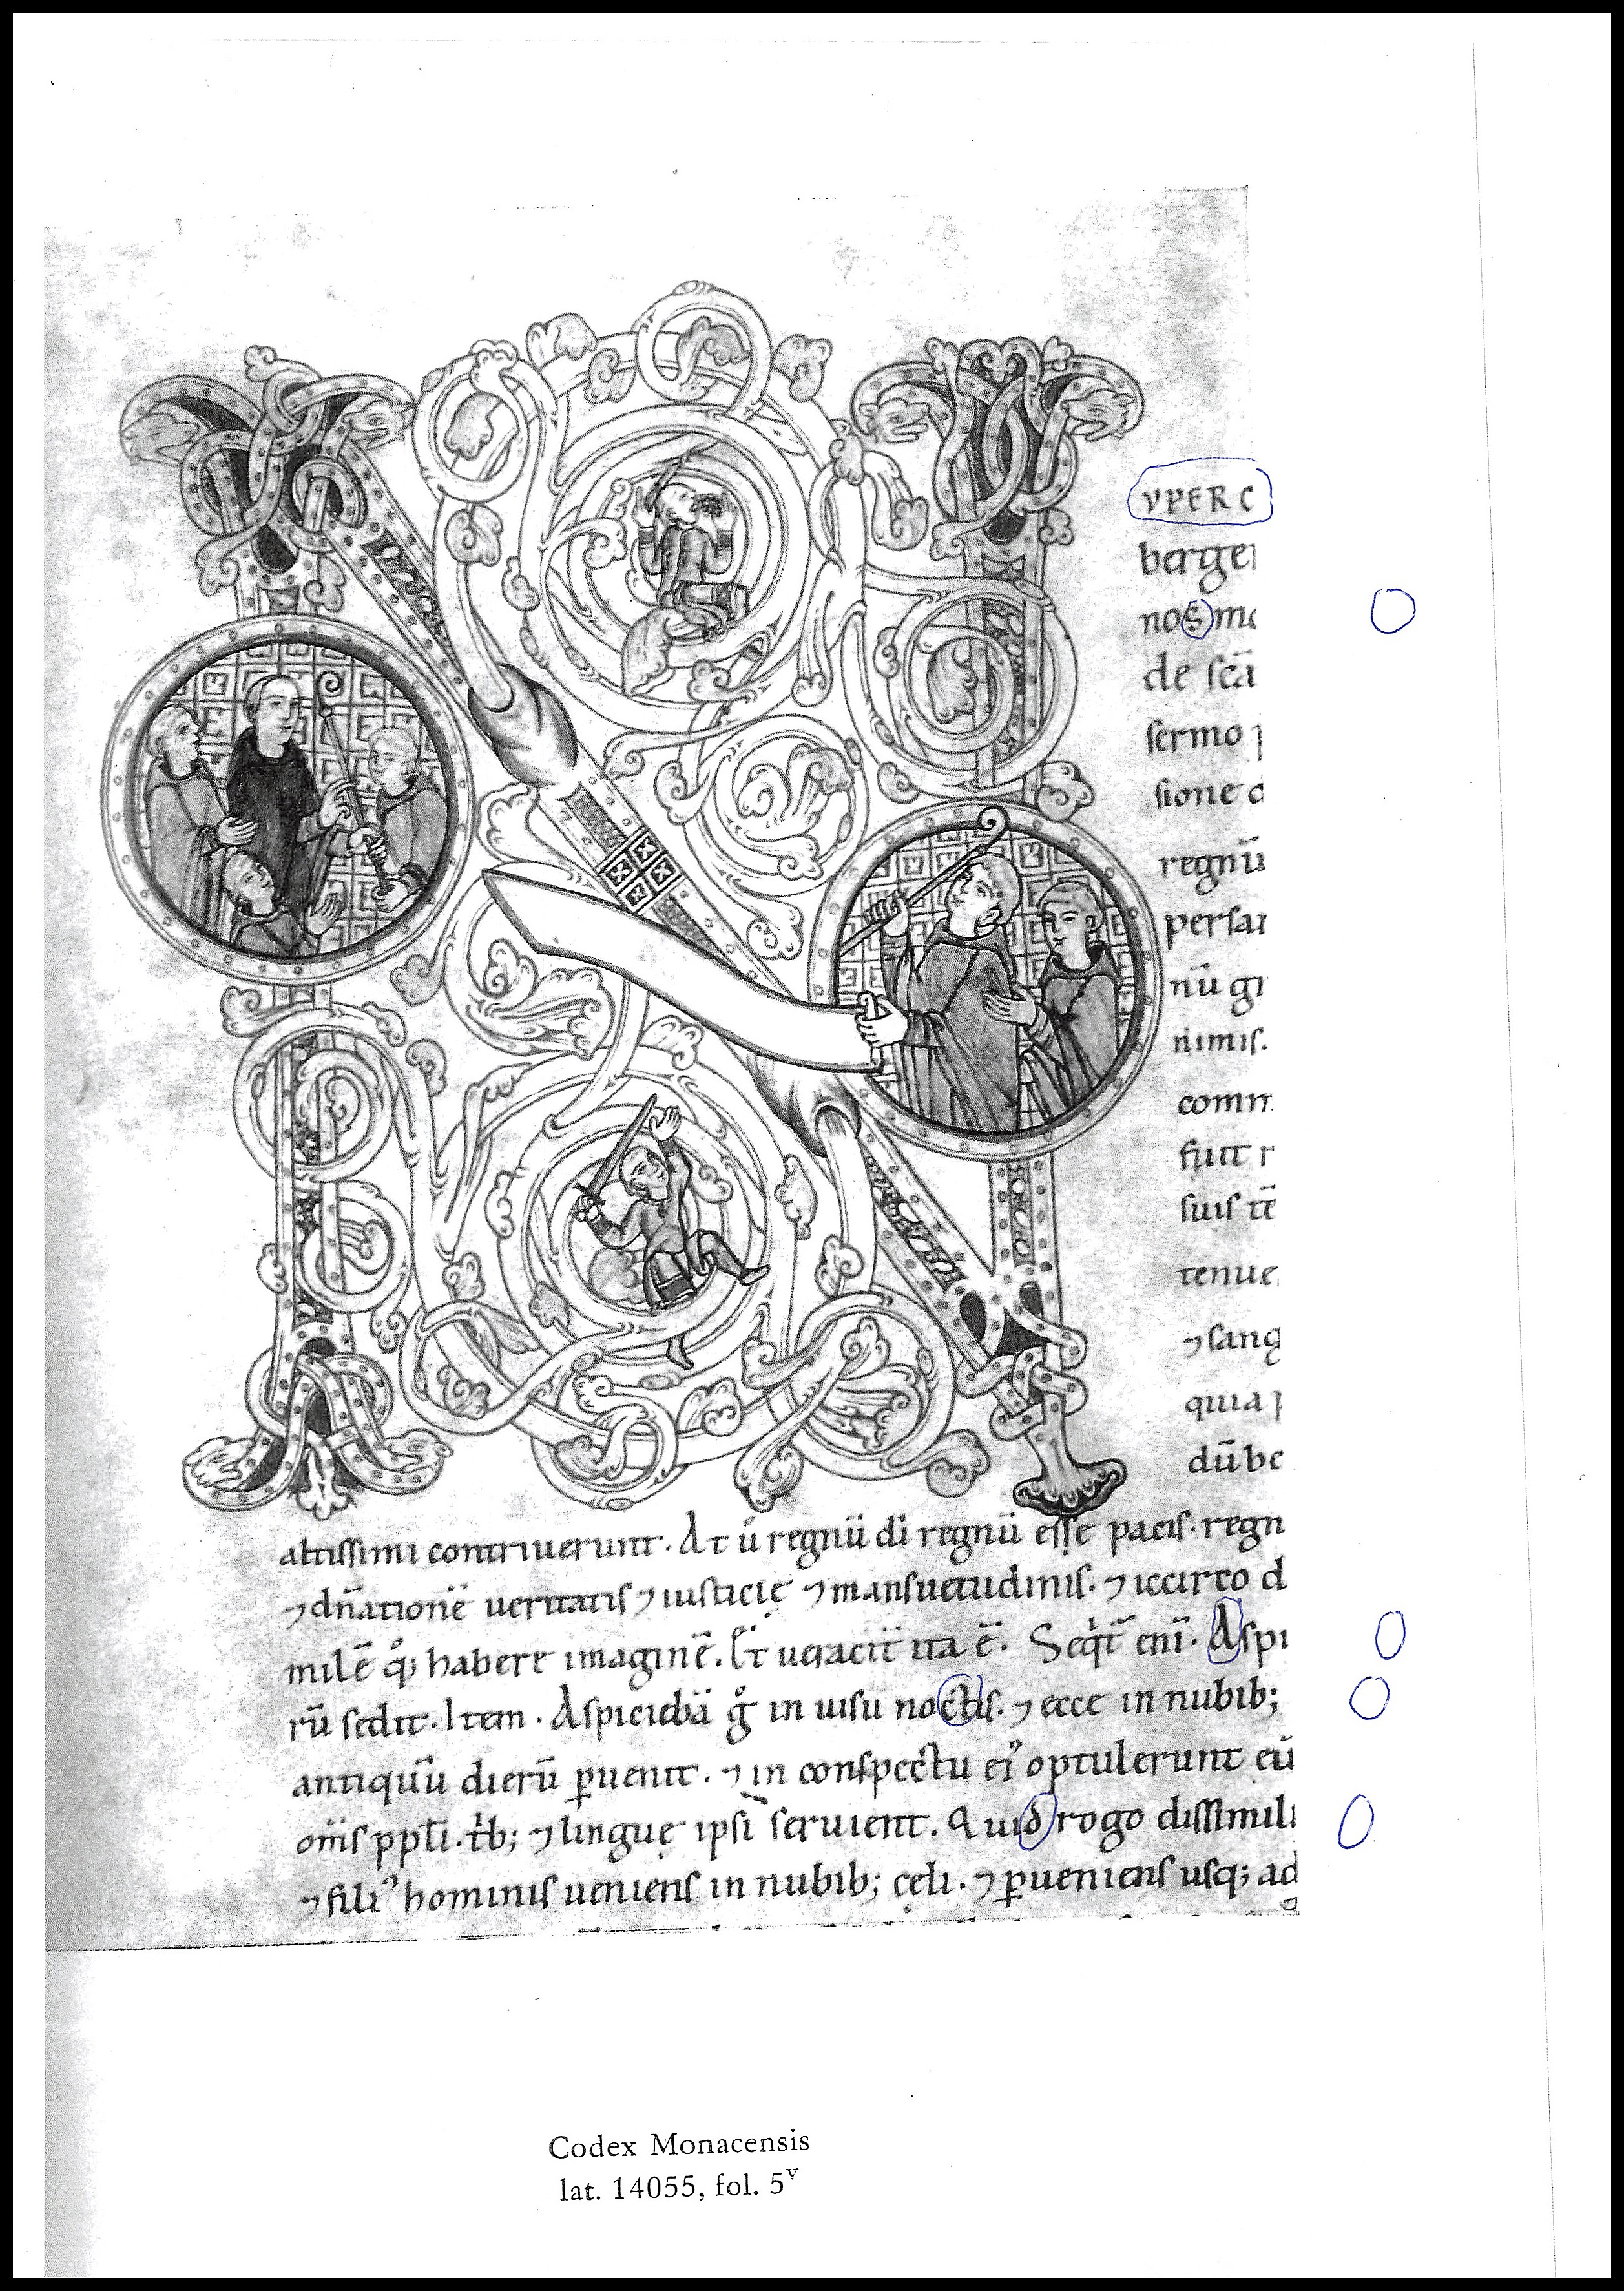 VPERC
berge
nosme
de scā
sermo
sione
regnū
persar
nū gr
nimis.
comm
fuit r
suis tē
tenue
⁊ sang
quia p
dū be
altissimi contriuerunt. At ů regnū dī regnū esse pacis. regn
⁊ dn̄ationē ueritatis ⁊ iusticię ⁊ mansuetudinis. ⁊ iccirco d
milē habere imaginē. Et ueracit̄ ita ē. Seqͥt̄ enī. Aspi
rū sedit. Item. Aspiciebā g̊ in uisu noctis. ⁊ ecce in nubib;
antiquū dierū ꝑuenit. ⁊ in conspectu eiꝰ optulerunt eū
om̄s pp̄li. tͥb; ⁊ linguę ipsī seruient. Quid rogo dissimili
⁊ filiꝰ hominis ueniens in nubib; cęli. ⁊ ꝑueniens usq; ad
Codex Monacensis
lat. 14055, fol. 5v